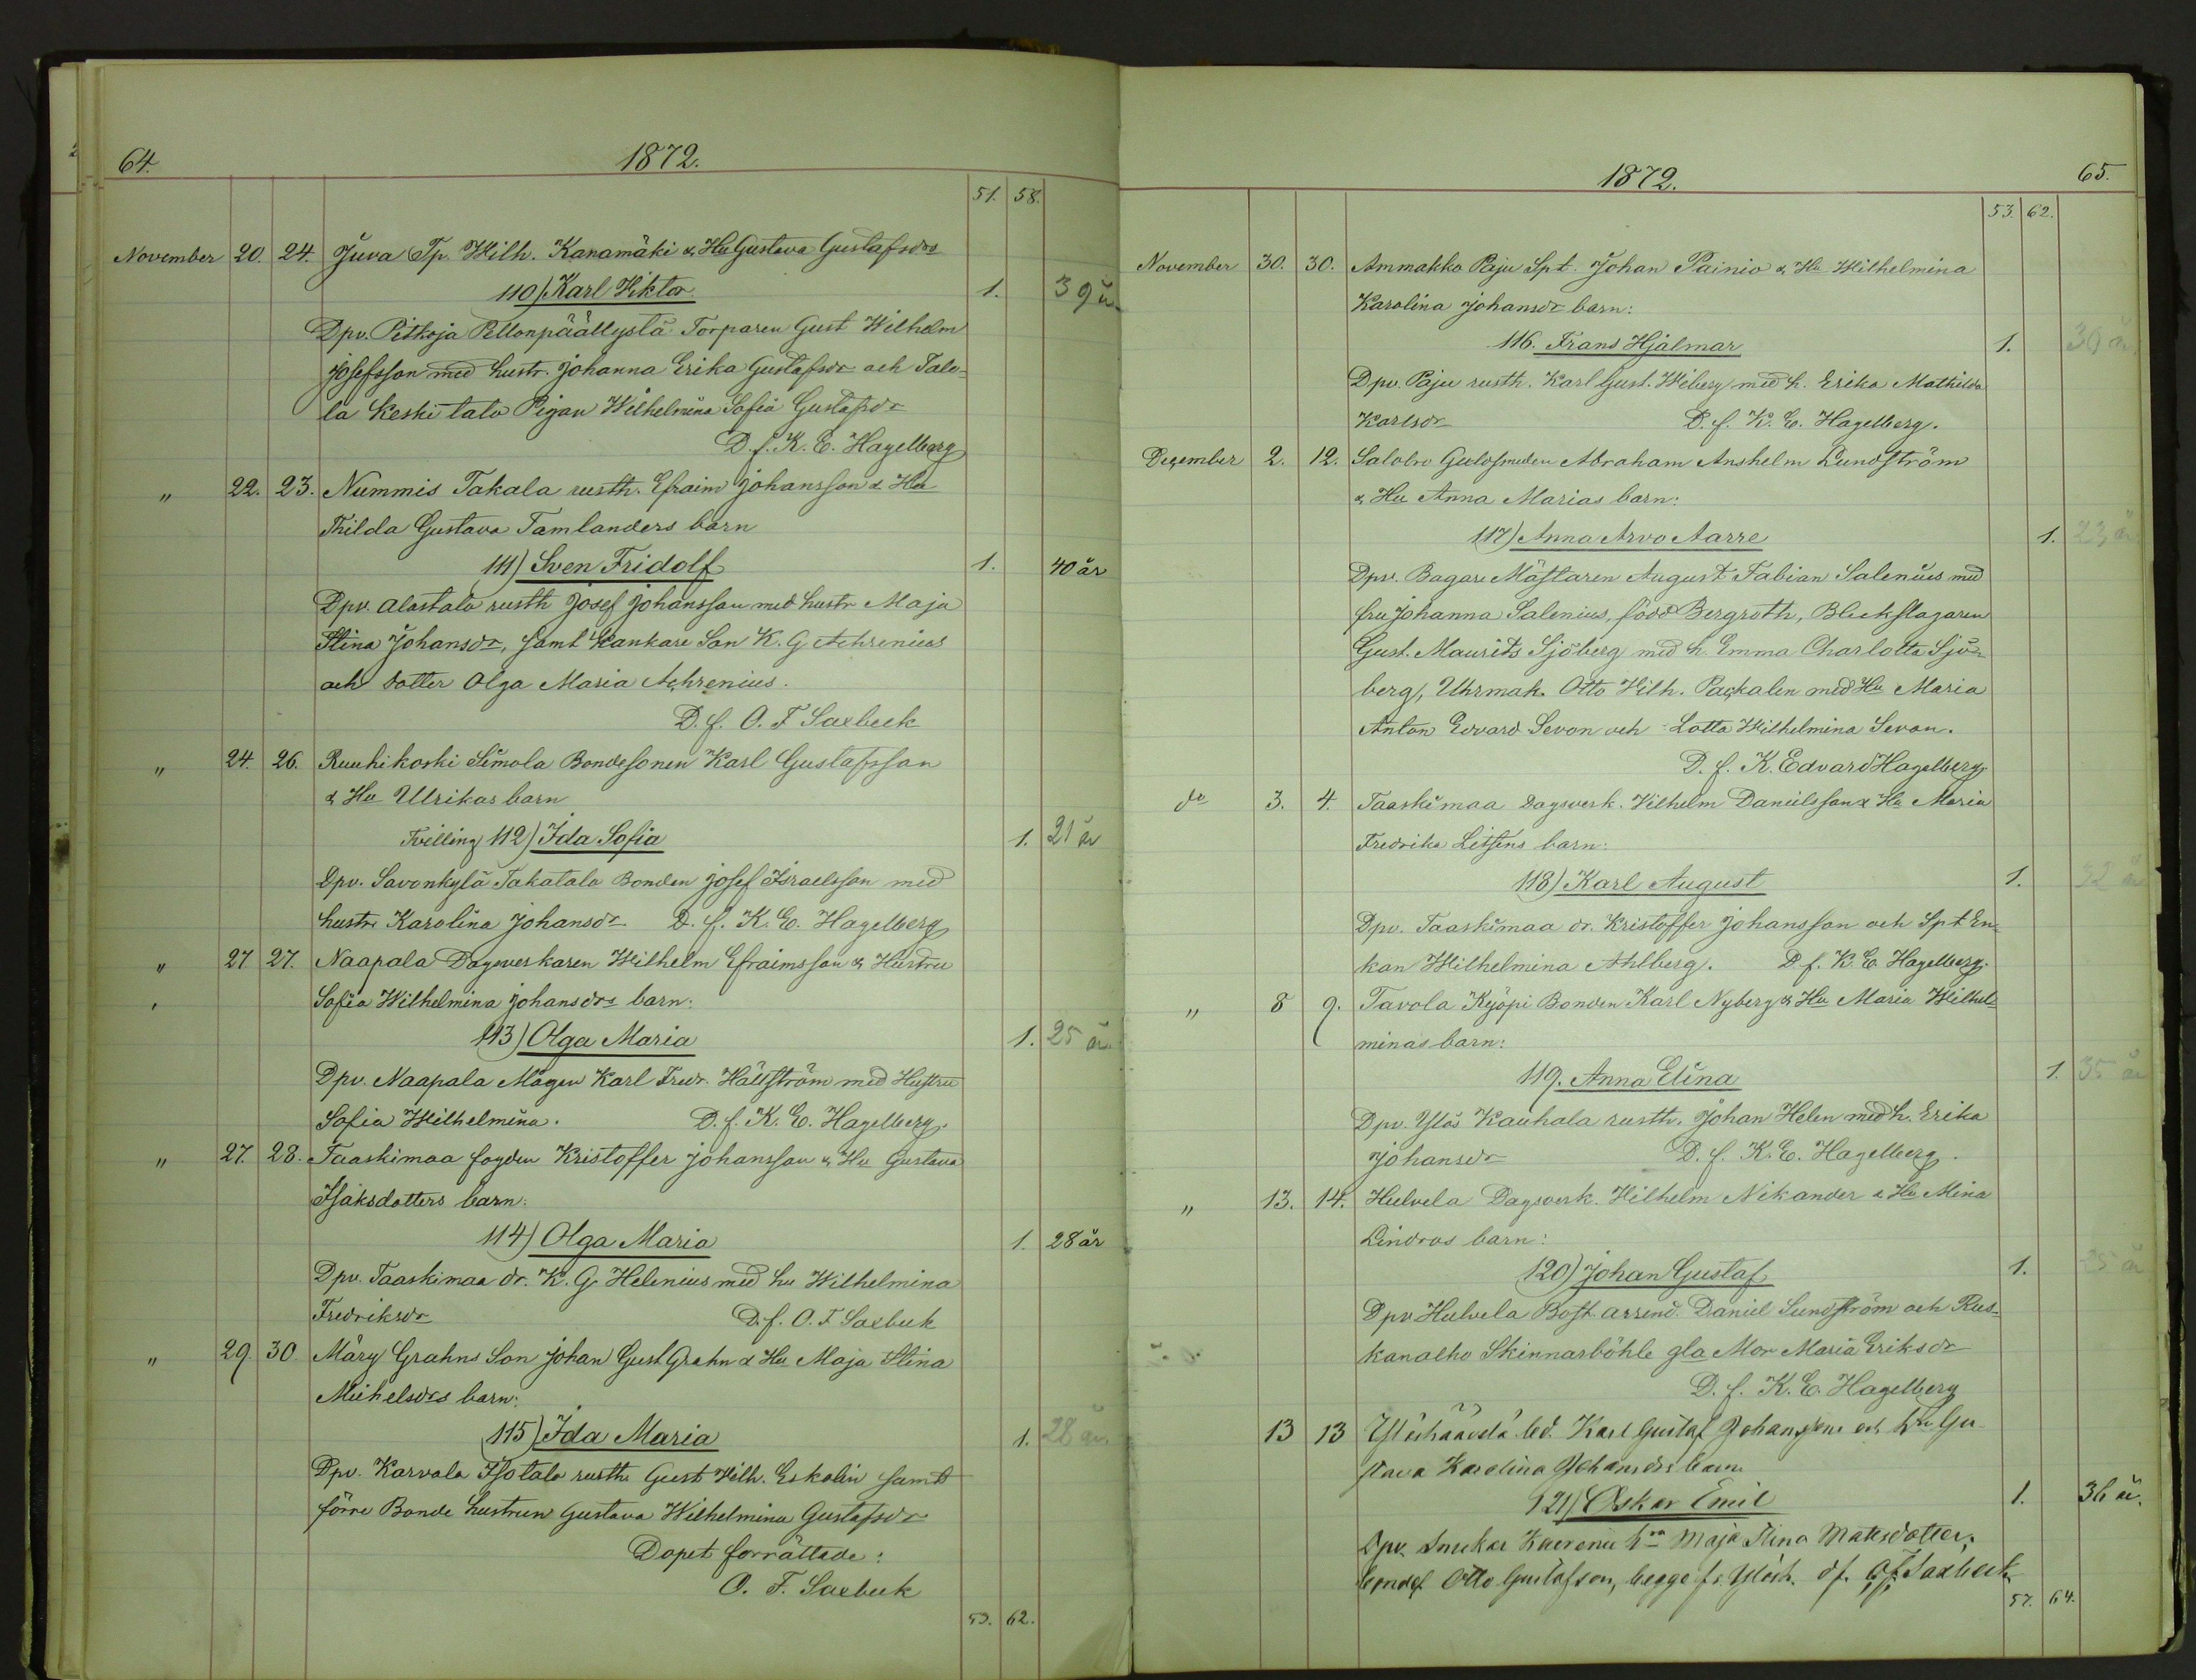 64. 1872.
51. 58.
November 20. 24. Juva Tp. Wilh. Kanamäki & Hu Gustava Gustafsdrs
110) Karl Viktor 1. 39 år
Dpv. Pitkoja Pellonpäällystä Torparen Gust Wilhelm
Josefsson med hustr. Johanna Erika Gustafsdr och Talo-
la Keskitalo Pigan Wilhelmina Sofia Gustafsdr
D. f. K. E. Hagelberg
" 22. 23. Nummis Takala rusth. Efraim Johansson & Hu
Thilda Gustava Tamlanders barn
111) Sven Fridolf 1. 40 år
Dpv. Alastalo rusth Josef Johansson med hustr Maja
Stina Johansdr, samt Kankare Son K. G Achrenius
och dotter Olga Maria Achrenius.
D. f. O. F Saxbeck
" 24. 26. Ruuhikoski Simola Bondesonen Karl Gustafsson
& Hu Ulrikas barn
Tvilling 112) Ida Sofia 1. 21 år
Dpv. Savonkylä Takatalo Bonden Josef Israelsson med
hustr Karolina Johansdr D. f. K. E. Hagelberg
" 27 27. Naapala Dagsverkaren Wilhelm Efraimsson & Hustru
Sofia Wilhelmina Johansdrs barn:
113) Olga Maria 1. 25 år
Dpv. Naapala Mågen Karl Fredr. Hällström med Hustru
Sofia Wilhelmina. D. f. K. E. Hagelberg.
" 27. 28. Taaskimaa fogden Kristoffer Johansson & Hu Gustava
Isaksdotters barn:
114) Olga Maria 1. 28 år
Dpv. Taaskimaa dr. K. G. Helenius med hu Wilhelmina
Fredriksdr D. f. O. F Saxbeck
" 29. 30. Märy Grahns Son Johan Gust Grahn & Hu Maja Stina
Michelsdrs barn:
115) Ida Maria 1. 28 år
Dpv. Karvala Isotalo rusth Gust Wilh. Eskolin samt
förre Bonde hustrun Gustava Wilhelmina Gustafsdr
Dopet förrättade:
O. F. Saxbeck
53. 62.
1872. 65.
53. 62.
November 30. 30. Ammakko Paju Spt. Johan Painio & Hu Wilhelmina
Karolina Johansdr barn:
116. Frans Hjalmar 1. 36 år
Dpv. Paju rusth. Karl Gust. Wiberg med h. Erika Mathilda
Karlsdr D. f. K. E. Hagelberg.
December 2. 12. Salobro Guldsmeden Abraham Anshelm Lundström
& Hu Anna Marias barn:
117) Anna Arvo Aarre 1. 23 år
Dpv. Bagare Mästaren August Fabian Salenius med
fru Johanna Salenius, född Bergroth, Bleckslagaren
Gust. Maurits Sjöberg med h. Emma Charlotta Sjö-
berg, Uhrmak. Otto Wilh. Packalen med Hu Maria
Anton Edvard Sevon och Lotta Wilhelmina Sevon.
D. f. K. Edvard Hagelberg
do 3. 4. Taaskimaa Dagsverk. Vilhelm Danielsson & Hu Maria
Fredrika Litséns barn:
118) Karl August 1. 32 år
Dpv. Taaskimaa dr. Kristoffer Johansson och Spt En-
kan Wilhelmina Ahlberg. D. f. K. E. Hagelberg.
" 8 9. Tavola Kyöpi Bonden Karl Nyberg & Hu Maria Wilhel-
minas barn:
119. Anna Elina 1. 35 år
Dpv. Ylös Kauhala rusth. Johan Helen med h. Erika
Johansdr D. f. K. E. Hagelberg.
" 13. 14. Hulvela Dagsverk. Wilhelm Nikander & Hu Mina
Lindros barn:
120) Johan Gustaf 1. 25 år
Dpv Hulvela Bost. arrend. Daniel Sundström och Rus-
kanalho Skinnarböhle gla Mor Maria Eriksdr
D. f. K. E. Hagelberg
13 13 Karl Gustaf Johansson och hu Gu-
stava Karolina Johansdrs barn
121) Oskar Emil 1. 36 år.
Dpv. hu Maja Stina Mattsdotter,
Otto Gustafson, begge fr. Ylösh. df. O. F. Saxbeck
57. 64.